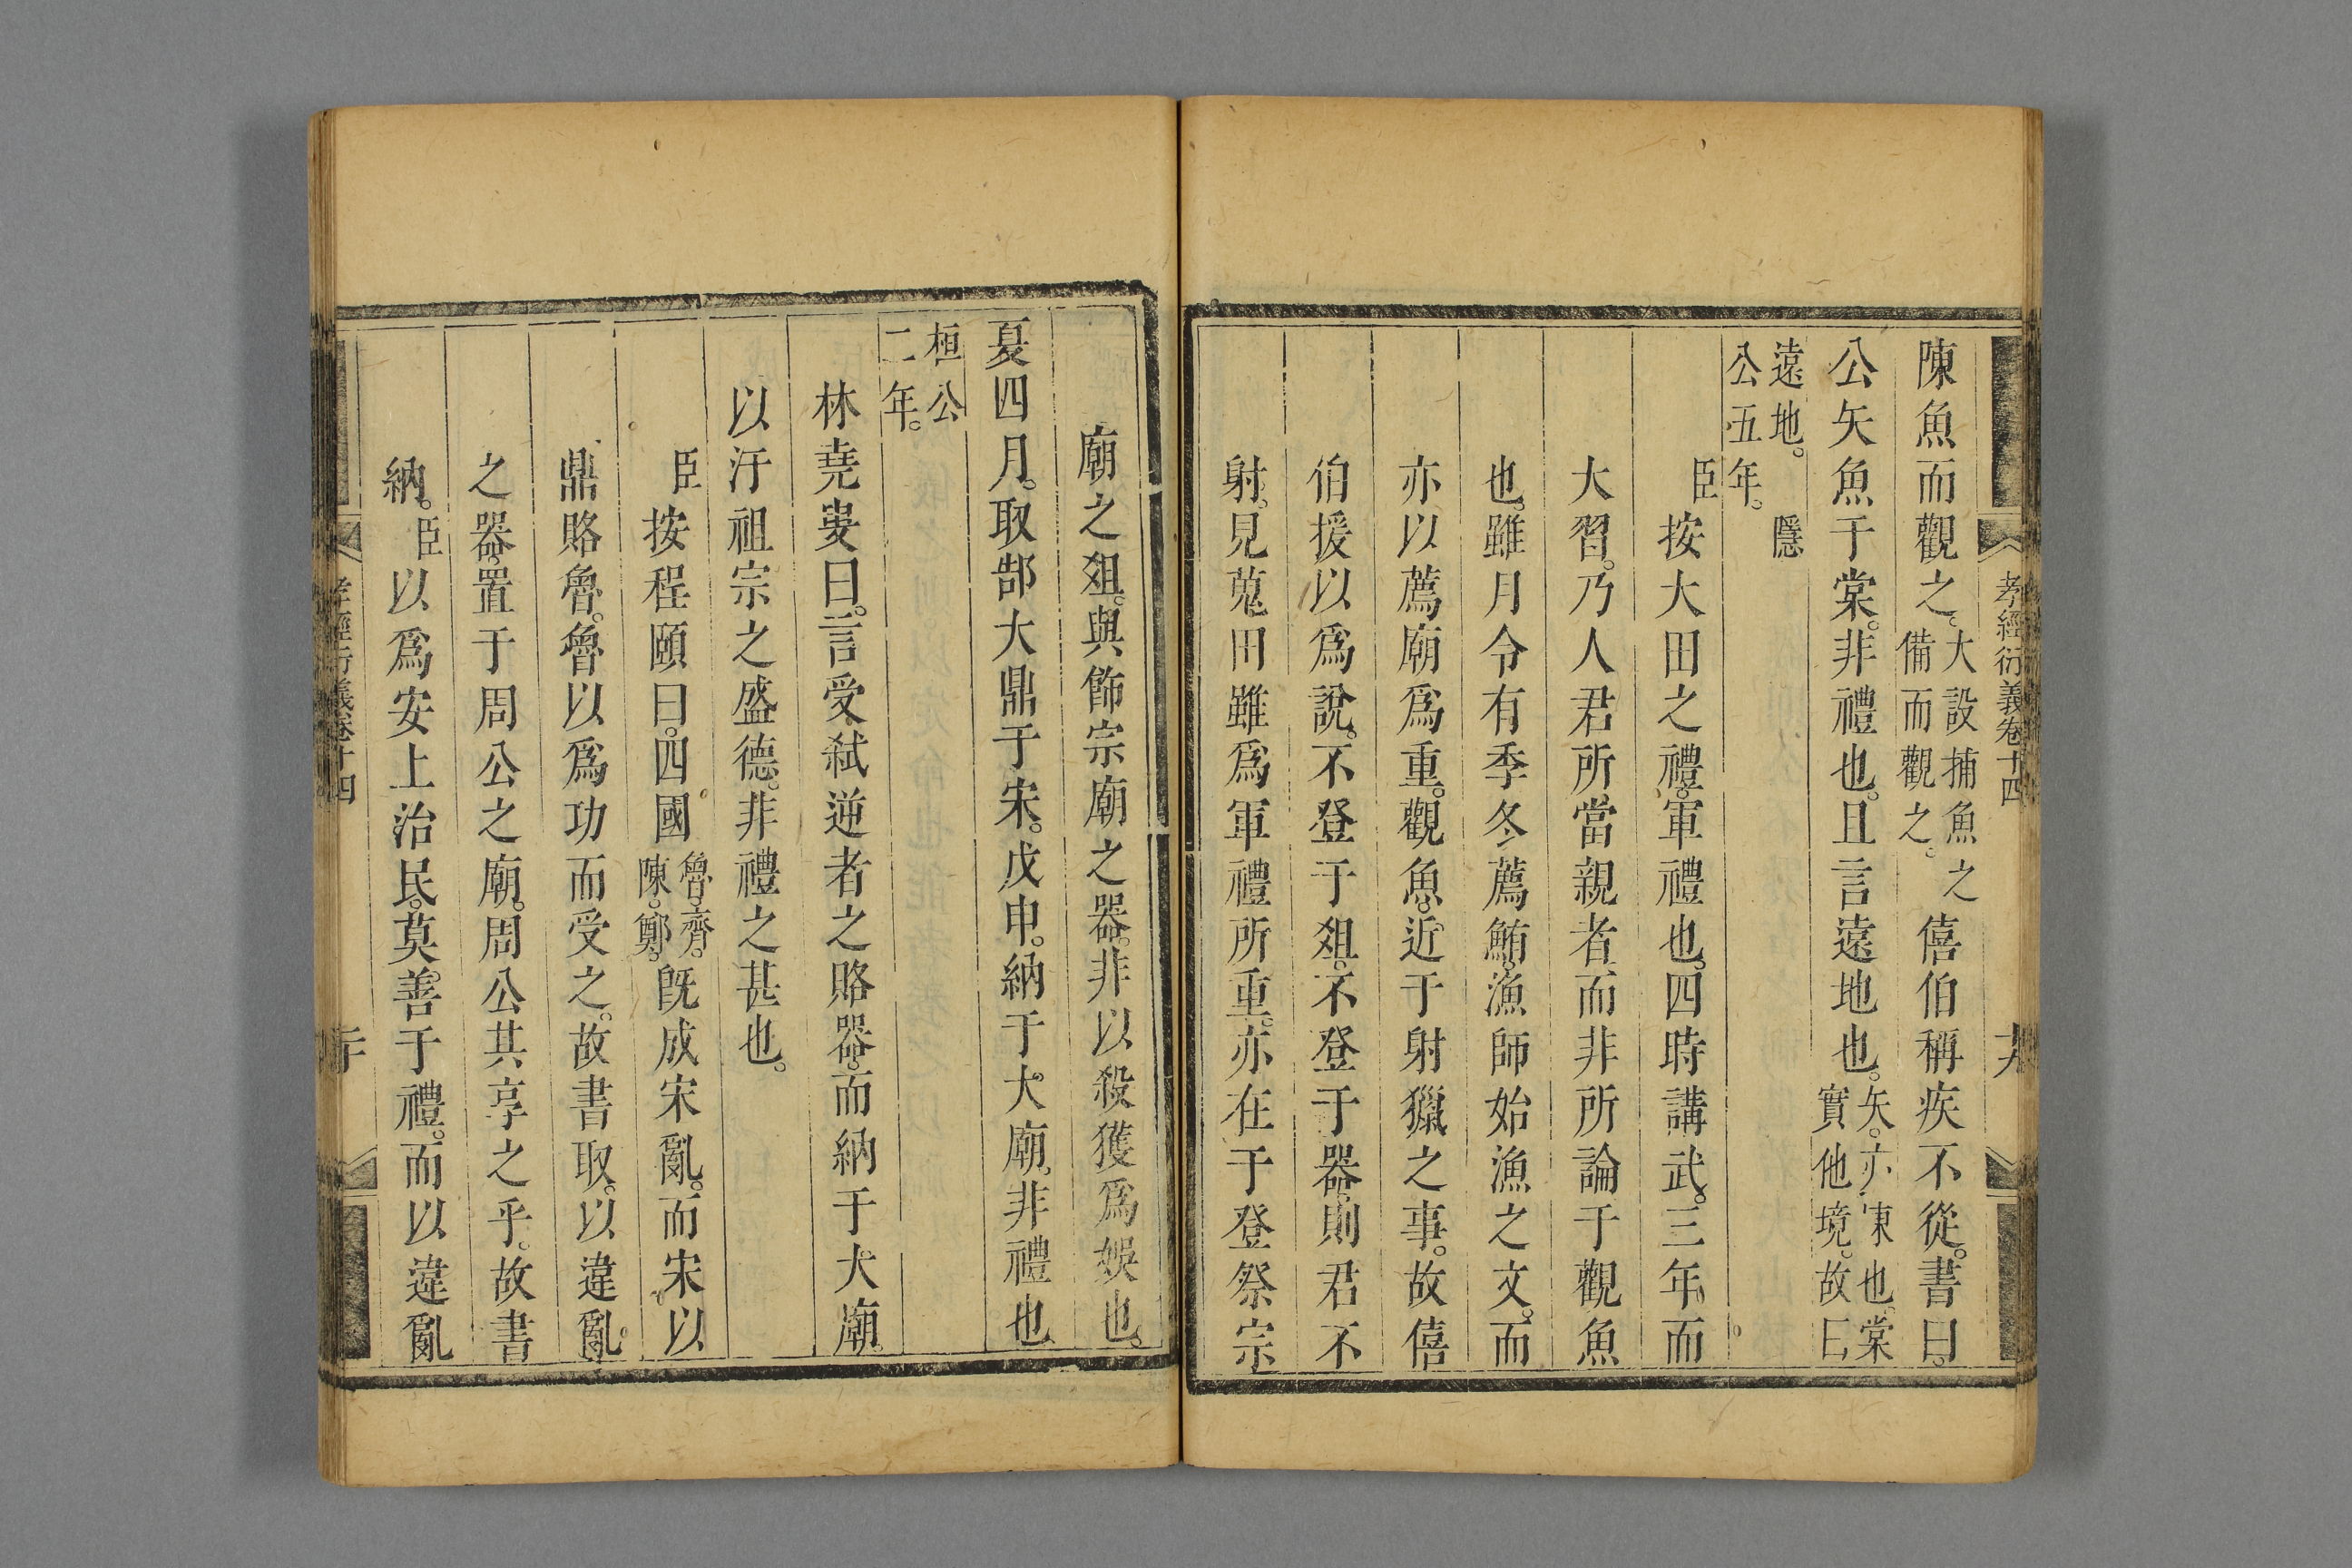 孝經衍義卷十四
陳魚而觀之。大設捕魚之備而觀之。僖伯稱疾不從。書曰。
公矢魚于棠。非禮也。且言遠地也。矢。亦陳也。棠實他境。故曰
遠地。隱公五年。
臣按大田之禮。軍禮也。四時講武。三年而
大習。乃人君所當親者。而非所論于觀魚
也。雖月令有季冬薦鮪。漁師始漁之文。而
亦以薦廟爲重。觀魚。近于射獵之事。故僖
伯援以爲說。不登于俎。不登于器。則君不
射。見蒐田雖爲軍禮所重。亦在于登祭宗
廟之俎。與飾宗廟之器。非以殺獲爲娛也。
夏四月。取郜大鼎于宋。戊申。納于大廟。非禮也。
桓公二年。
林堯叟曰。言受弒逆者之賂器。而納于大廟。
以汙祖宗之盛德。非禮之甚也。
臣按程頤曰。四國魯。齊。陳。鄭。旣成宋亂。而宋以
鼎賂魯。魯以爲功而受之。故書取。以違亂
之器。置于周公之廟。周公其享之乎。故書
納。臣以爲安上治民。莫善于禮。而以違亂